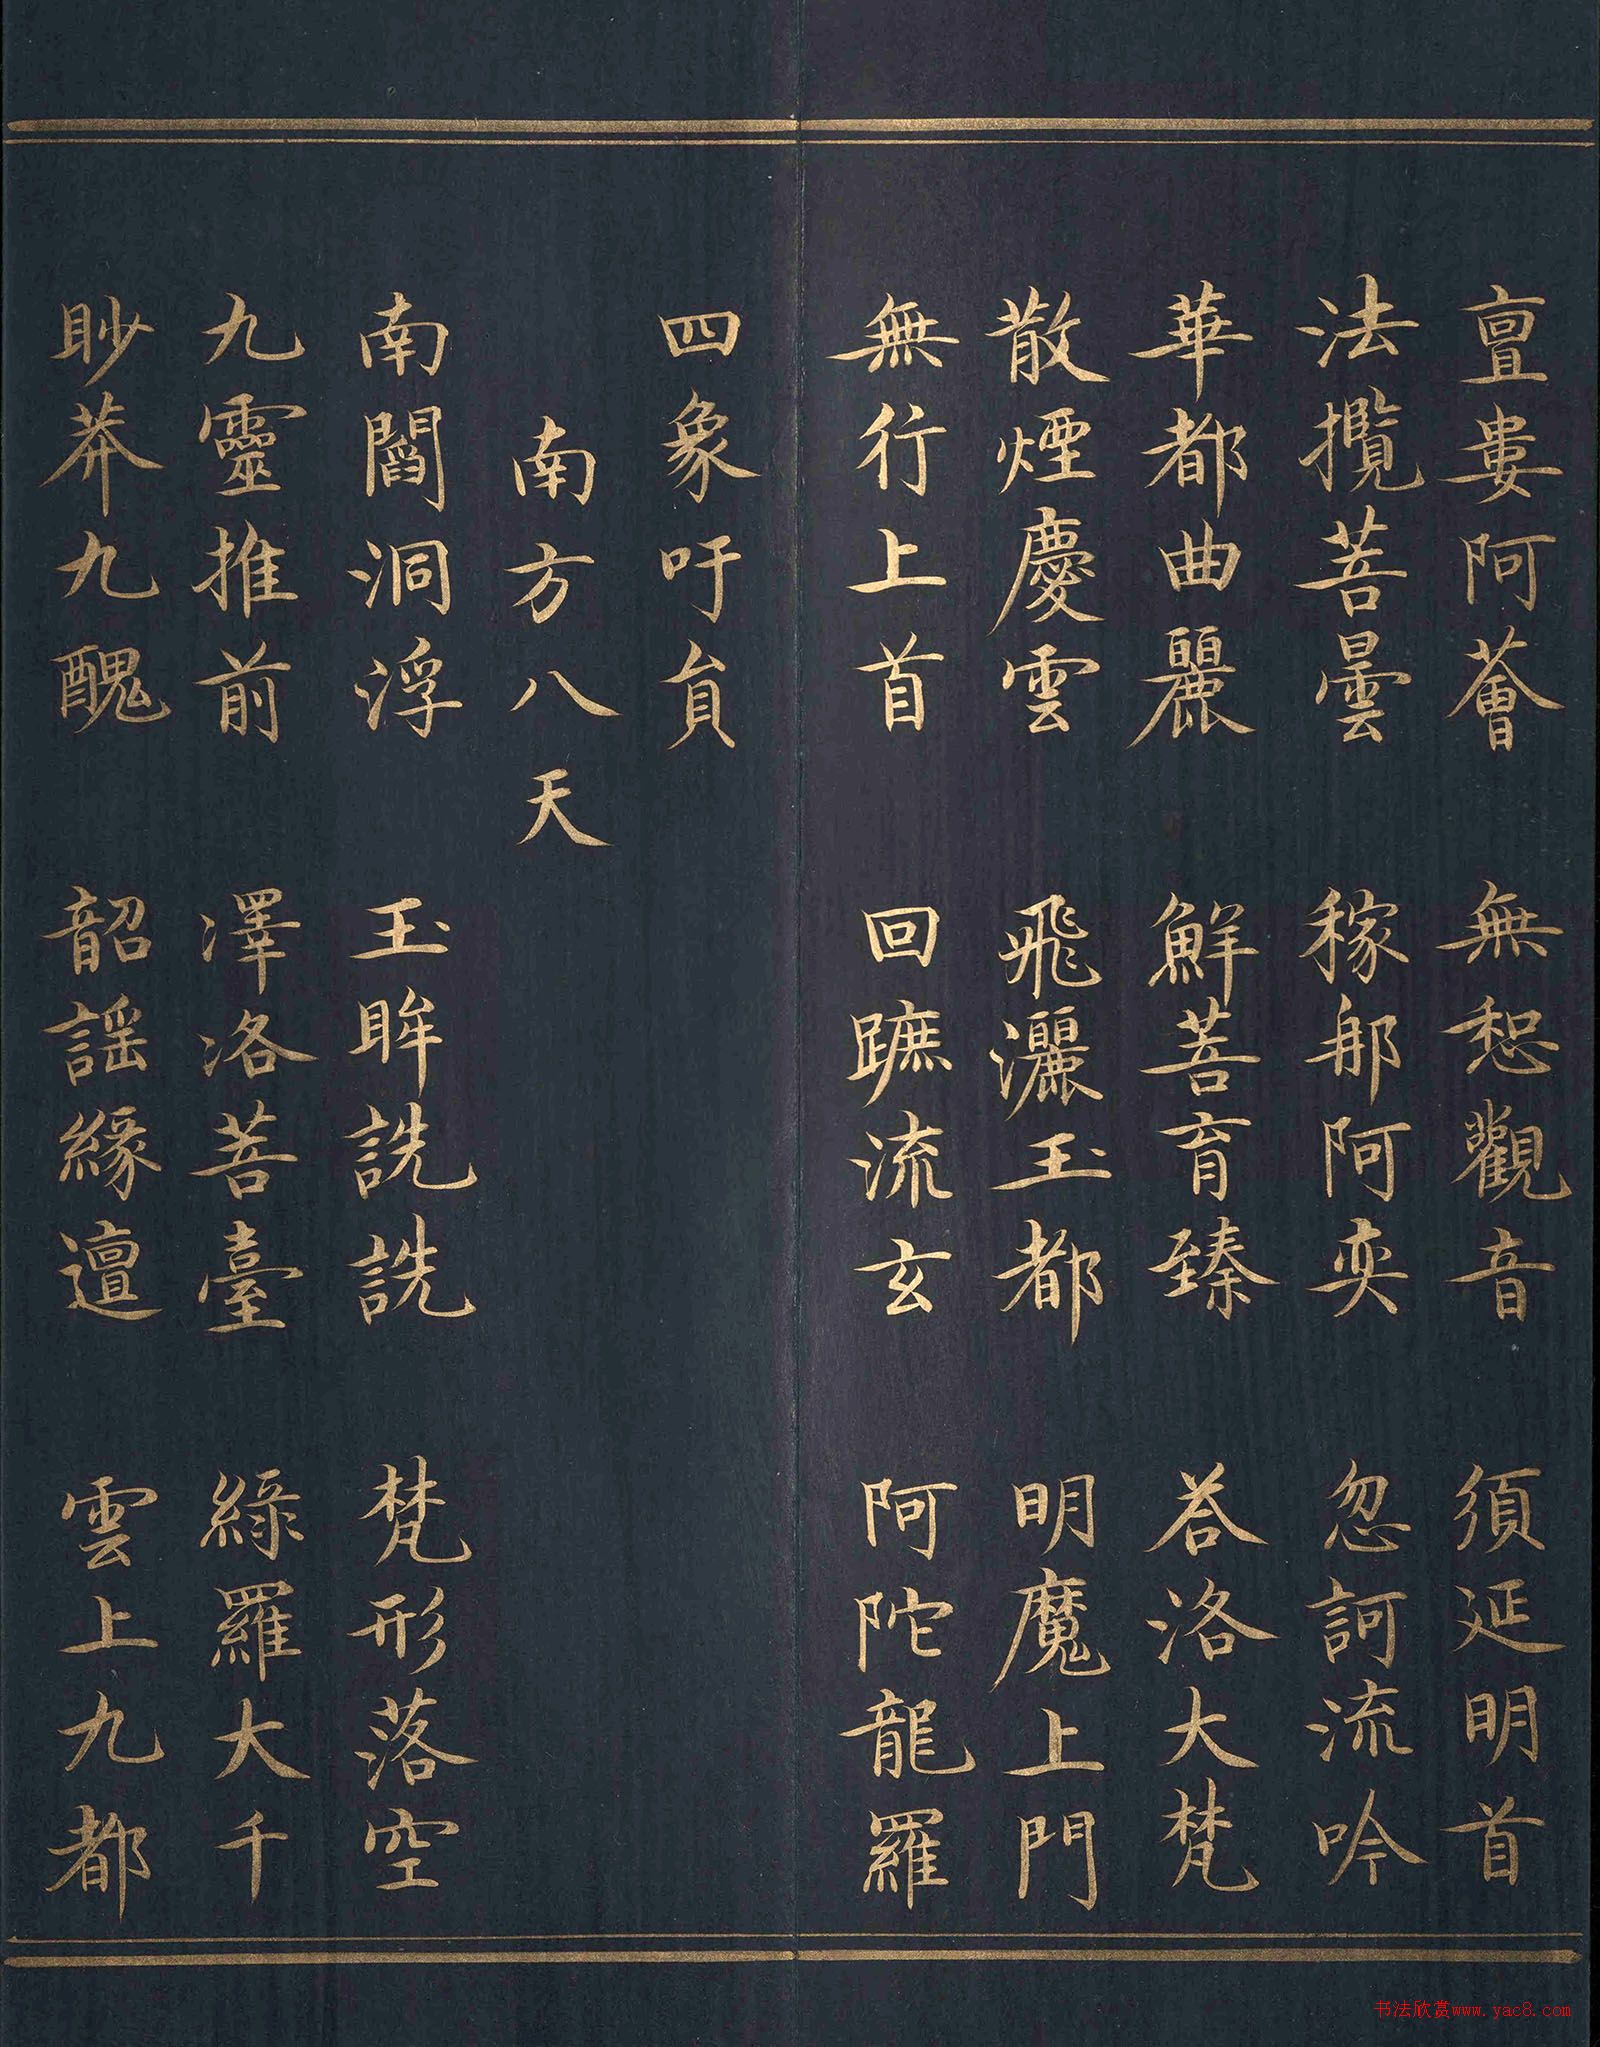 亶婁阿薈 無惒觀音 須延明首
法攬菩曇 稼郍阿奕 忽訶流吟
華都曲麗 鮮菩育臻 荅洛大梵
散煙慶雲 飛灑玉都 明魔上門
無行上首 回蹠流玄 阿陀龍羅
四象吁員
南方八天
南閻洞浮 玉眸詵詵 梵形落空
九靈推前 澤洛菩臺 綠羅大千
眇莽九醜 韶謡緣邅 雲上九都
书法欣赏www.yac8.com